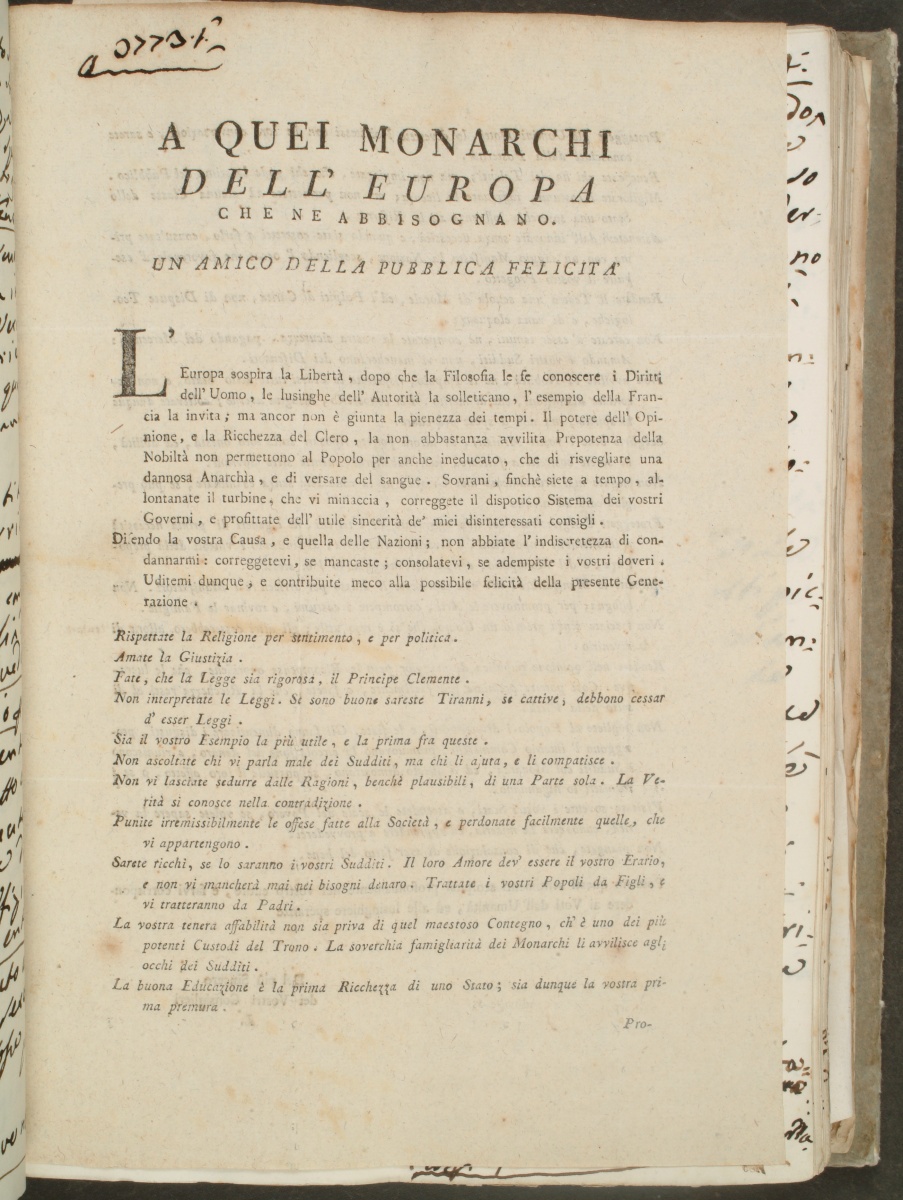 A QUEI MONARCHI
DELL' EUROPA
CHE NE ABBISOGNANO.
UN AMICO DELLA PUBBLICA FELICITÀ
L'Europa sospira la Libertà, dopo che la Filosofia le fe conoscere i Diritti
dell' Uomo, le lusinghe dell' Autorità la solleticano, l' esempio della Fran-
cia la invita; ma ancor non è giunta la pienezza dei tempi. Il potere dell' Opi-
nione, e la Ricchezza del Clero, la non abbastanza avvilita Prepotenza della
Nobiltà non permettono al Popolo per anche ineducato, che di risvegliare una
dannosa Anarchìa, e di versare del sangue. Sovrani, finchè siete a tempo, al-
lontanate il turbine, che vi minaccia, correggete il dispotico Sistema dei vostri
Governi, e profittate dell' utile sincerità de' miei disinteressati consigli.
Difendo la vostra Causa, e quella delle Nazioni; non abbiate l' indiscretezza di con-
dannarmi: correggetevi, se mancaste; consolatevi, se adempiste i vostri doveri.
Uditemi dunque, e contribuite meco alla possibile felicità della presente Gene-
razione.
Rispettate la Religione per sentimento, e per politica.
Amate la Giustizia.
Fate, che la Legge sia rigorosa, il Principe Clemente.
Non interpretate le Leggi. Se sono buone sareste Tiranni, se cattive, debbono cessar
d' esser Leggi.
Sia il vostro Esempio la più utile, e la prima fra queste.
Non ascoltate chi vi parla male dei Sudditi, ma chi li ajuta, e li compatisce.
Non vi lasciate sedurre dalle Ragioni, benchè plausibili, di una Parte sola. La Ve-
rità si conosce nella contradizione.
Punite irremissibilmente le offese fatte alla Società, e perdonate facilmente quelle, che
vi appartengono.
Sarete ricchi, se lo saranno i vostri Sudditi. Il loro Amore dev' essere il vostro Erario,
e non vi mancherà mai nei bisogni denaro. Trattate i vostri Popoli da Figli, e
vi tratteranno da Padri.
La vostra tenera affabilità non sia priva di quel maestoso Contegno, ch' è uno dei più
potenti Custodi del Trono. La soverchia famigliarità dei Monarchi li avvilisce agli
occhi dei Sudditi.
La buona Educazione è la prima Ricchezza di uno Stato; sia dunque la vostra pri-
ma premura.
Pro-